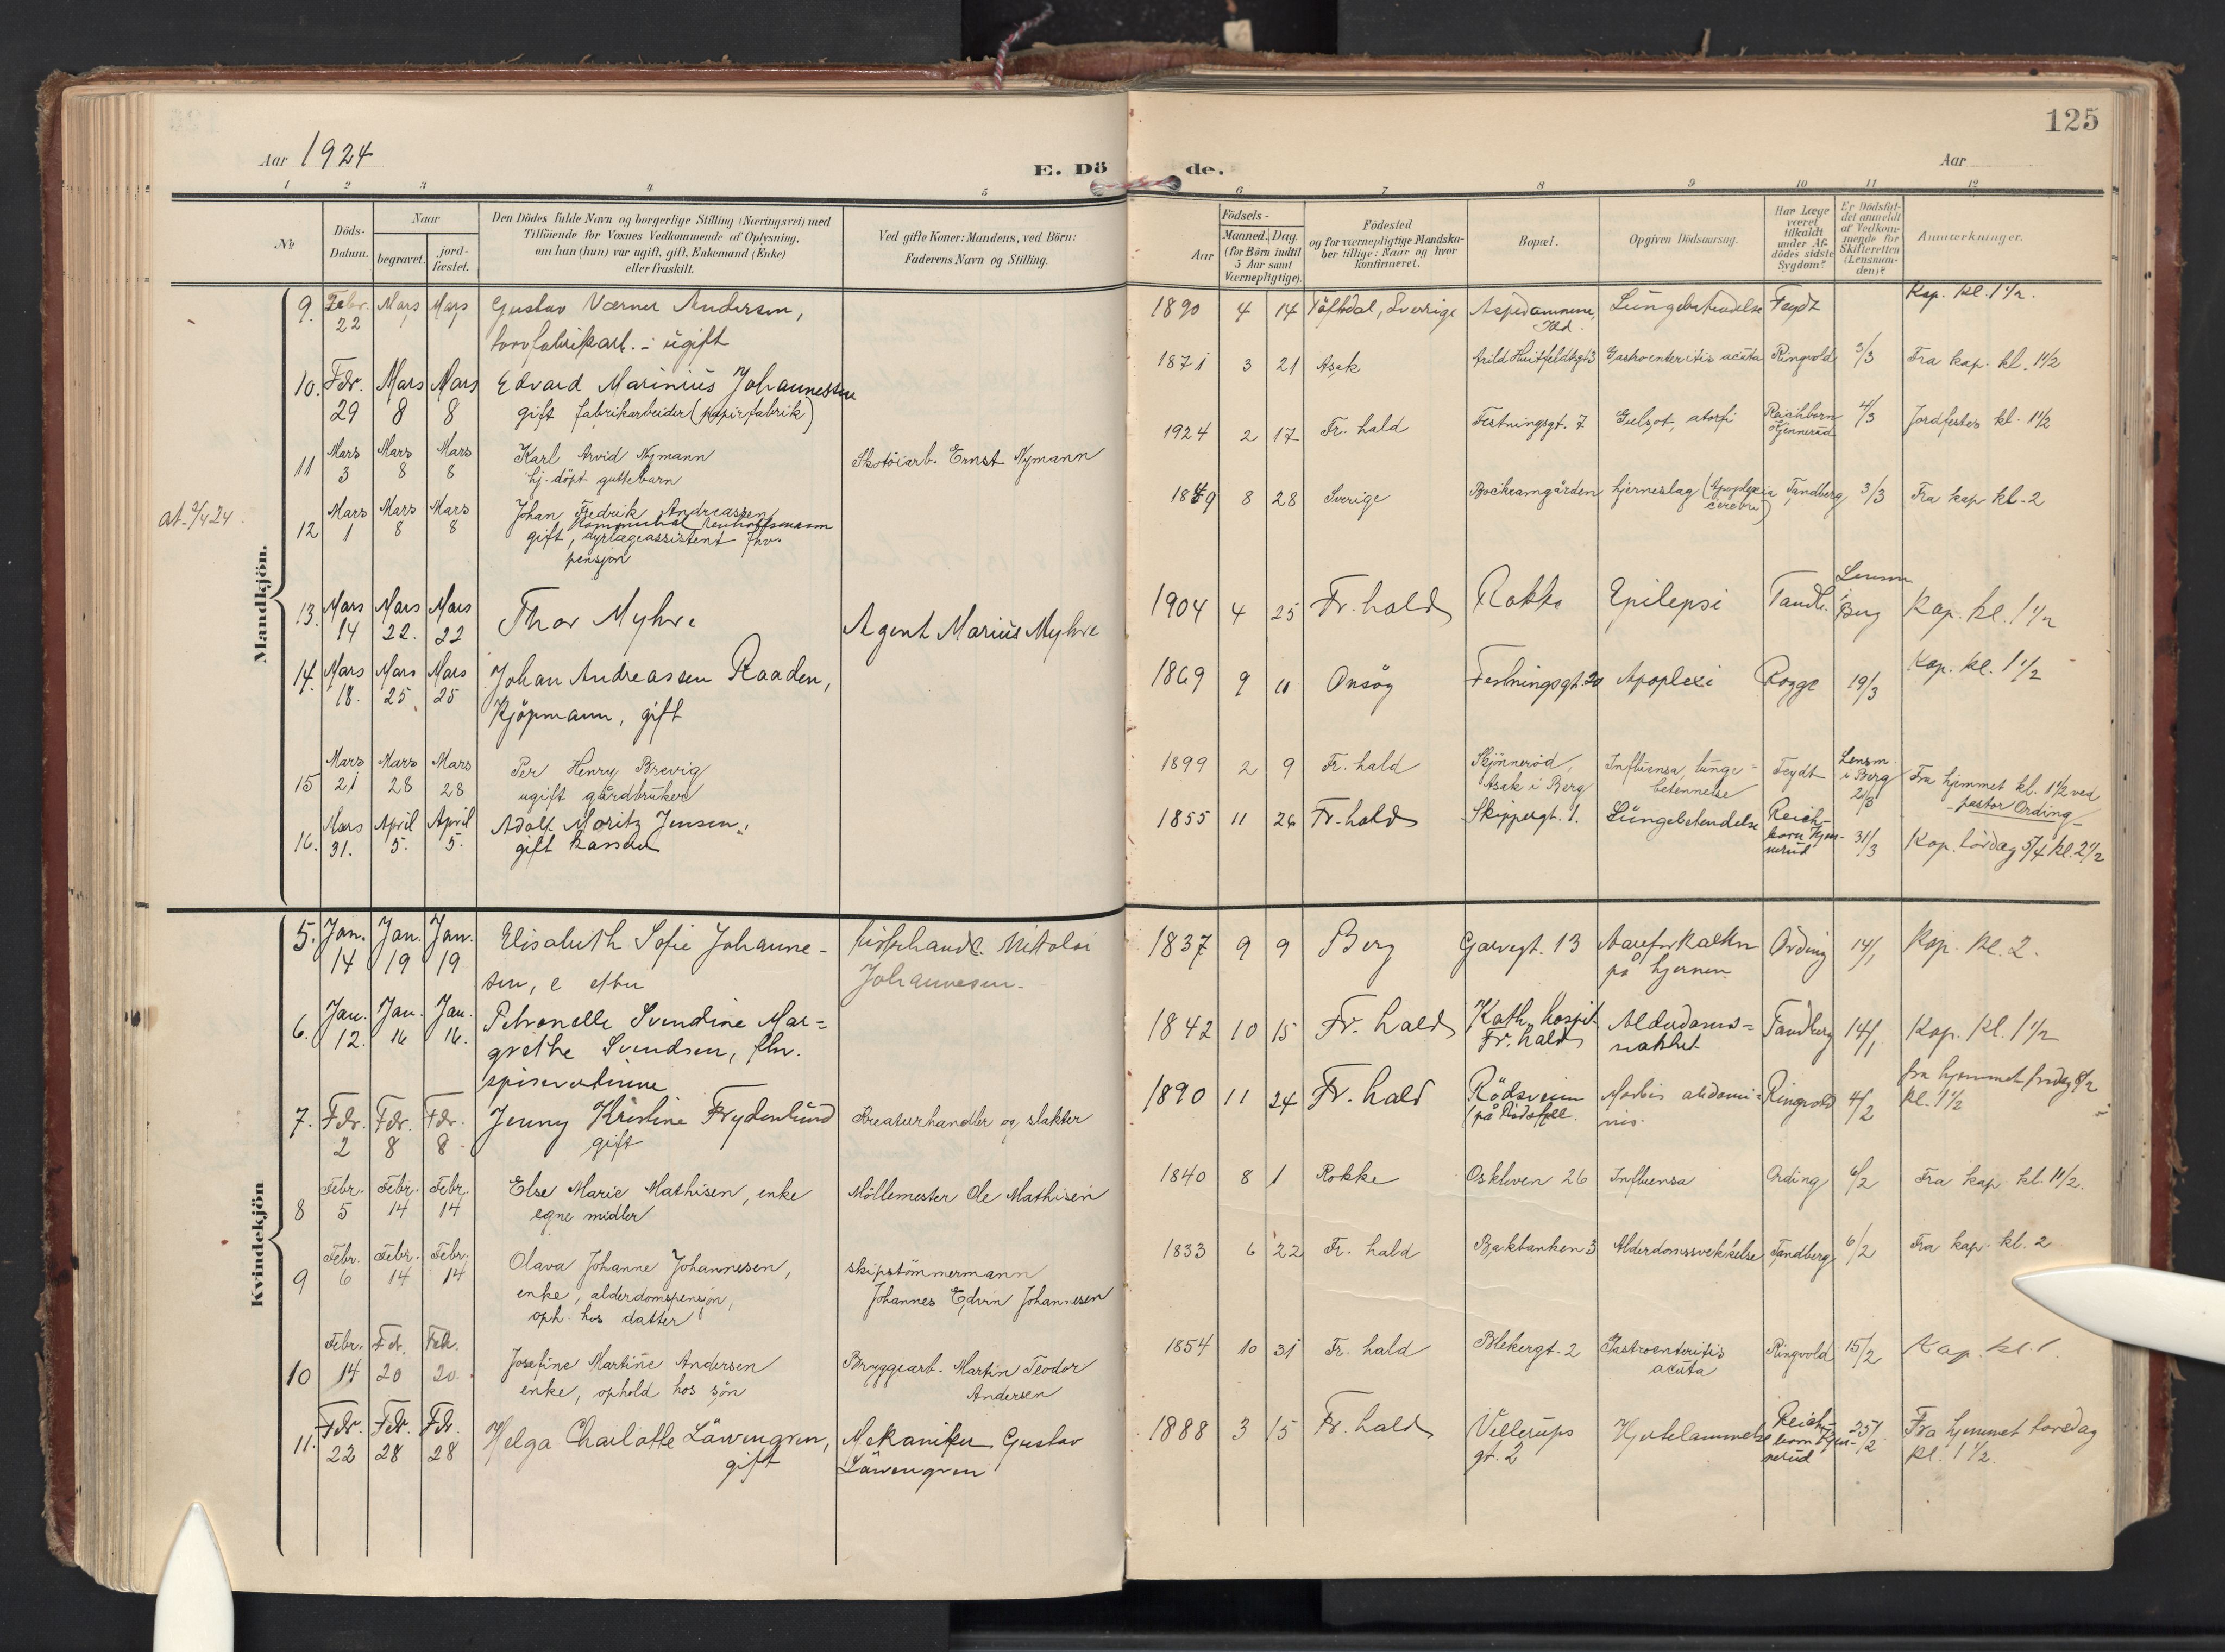 125
Aar 1924
E. Dö
de.
Aar
1 2 3 4 5
6 7 8 9 10 11 12
No
Döds-
Datum.
Naar
begravet.
jord-
fæstet.
Den Dödes fulde Navn og borgerlige Stilling (Næringsvei) med
Tilföiende for Voxnes Vedkommende af Oplysning,
om han (hun) var ugift, gift, Enkemand (Enke)
eller fraskilt.
Ved gifte Koner: Mandens, ved Börn:
Faderens Navn og Stilling.
Födsels-
Aar
Maaned. Dag
(for Börn indtil
5 Aar samt
Værnepligtige).
Födested
og for værnepligtige Mandska-
ber tillige: Naar og hvor
konfirmeret.
Bopæl.
Opgiven Dödsaarsag.
Har Læge
været
tilkaldt
under Af-
dödes sidste
Sygdom?
Er Dödsfal-
det anmeldt
af Vedkom-
mende for
Skifteretten
(Lensman-
den)?
Anmærkninger.
Mandkjön.
9. Febr. Mars Mars Gustav Værner Andersen,
22 1 1
torvfabrikarb. - ugift
1890 4 14 Töftedal, Sverrige Aspedammene, Idd. Lungebetendelse Feydt Kap. kl. 1 1/2.
10. Febr. Mars Mars Edvard Marinius Johannessen
29 8 8 gift fabrikarbeider (papirfabrik)
1871 3 21 Asak Arild Huitfeldtsgt 3 Gastroenteritis acuta Ringvold 3/3 Fra kap. kl. 1 1/2
11 Mars Mars Mars Karl Arvid Nymann
3 8 8 hj. döpt guttebarn
Skotöiarb. Ernst Nymann
1924 2 17 Fr. hald Festningsgt. 7 Gulsot, atrofi Reichborn Kjennerud 4/3 Jordfestes kl. 1 1/2
at. 2/4 24.
12 Mars Mars Mars Johan Fredrik Andreassen
1 8 8 kommunal
gift, dyrlægeassistent fhv.
pensjon
1849 8 28 Sverige gården hjerneslag (Apoplexia cerebri) Tandberg 3/3 Fra kap kl. 2
13. Mars Mars Mars Thor Myhre
14 22. 22
Agent Marius Myhre
1904 4 25 Fr. hald Rokke Epilepsi Tandb. Lensm. i Berg Kap. kl. 1 1/2
14. Mars Mars Mars Johan Andreassen Raaden,
18. 25 25 Kjöpmann, gift
1869 9 11 Onsöy Festningsgt. 20 Apoplexi Rogge 19/3 Kap. kl. 1 1/2
15 Mars Mars Mars Per Henry Brevig
21 28 28 ugift gårdbruker
1899 2 9 Fr. hald Skjönneröd, Asak i Berg Influensa, lunge=betennelse Feydt Lensm. i Berg 21/3 Fra hjemmet kl. 1 1/2 ved
pastor Ording
16. Mars April April Adolf Moritz Jensen,
31. 5. 5. gift kasserer
1855 11 26 Fr. hald Skippergt. 1. Lungebetendelse Reichborn Kjennerud 31/3 Kap. lördag 5/4 kl. 2 1/2
Kvindekjön
5. Jan. Jan. Jan. Elisabeth Sofie Johanne-
14 19 19 sen, e efter
Nikolai
Johannesen.
1837 9 9 Berg Garvergt. 13 Aareforkalkn. på hjernen Ording 14/1 Kap. kl. 2.
6. Jan. Jan. Jan. Petronelle Svendine Mar-
12. 16 16. grethe Svendsen, fhv.
spisevertinne
1842 10 15 Fr. hald Kath. hospit. Fr. hald Alderdoms=svakhet Tandberg 14/1 Kap. kl. 1 1/2
7. Febr. Febr. Febr. Jenny Kristine Frydenlund
2 8 8 gift
Kreaturhandler og slakter
1890 11 24 Fr. hald Rödsveien (på Rödsfjell. Morbus abdominis Ringvold 4/2 fra hjemmet fredag 8/2
kl. 1 1/2
8 Febr. Febr. Febr. Else Marie Mathisen, enke
5 14 14 egne midler
Möllemester Ole Mathisen
1840 8 1 Rokke Oskleven 26 Influensa Ording 6/2 Fra kap. kl. 1 1/2.
9 Febr. Febr. Febr. Olava Johanne Johannesen,
6 14 14 enke, alderdomspensjon,
oph. hos datter
skipstömmermann
Johannes Edvin Johannesen
1833 6 22 Fr. hald Bakbanken 3 Alderdomssvekkelse Tandberg 6/2 Fra kap. kl. 2
10 Febr. Feb. Feb. Josefine Martine Andersen
14 20 20. enke, ophold hos sön
Bryggearb. Martin Teodor
Andersen
1854 10 31 Fr. hald Blekergt. 2 Gastroenteritis acuta Ringvold 15/2 Kap. kl. 1.
11. Febr. Febr. Febr. Helga Charlotte Läwengren,
22 28 28 gift
Mekaniker Gustav
Läwengren
1888 3 15 Fr. hald Vellerups gt. 2 Hjertelammelse Reichborn Kjennerud 25/2 Fra hjemmet torsdag
kl. 1 1/2.